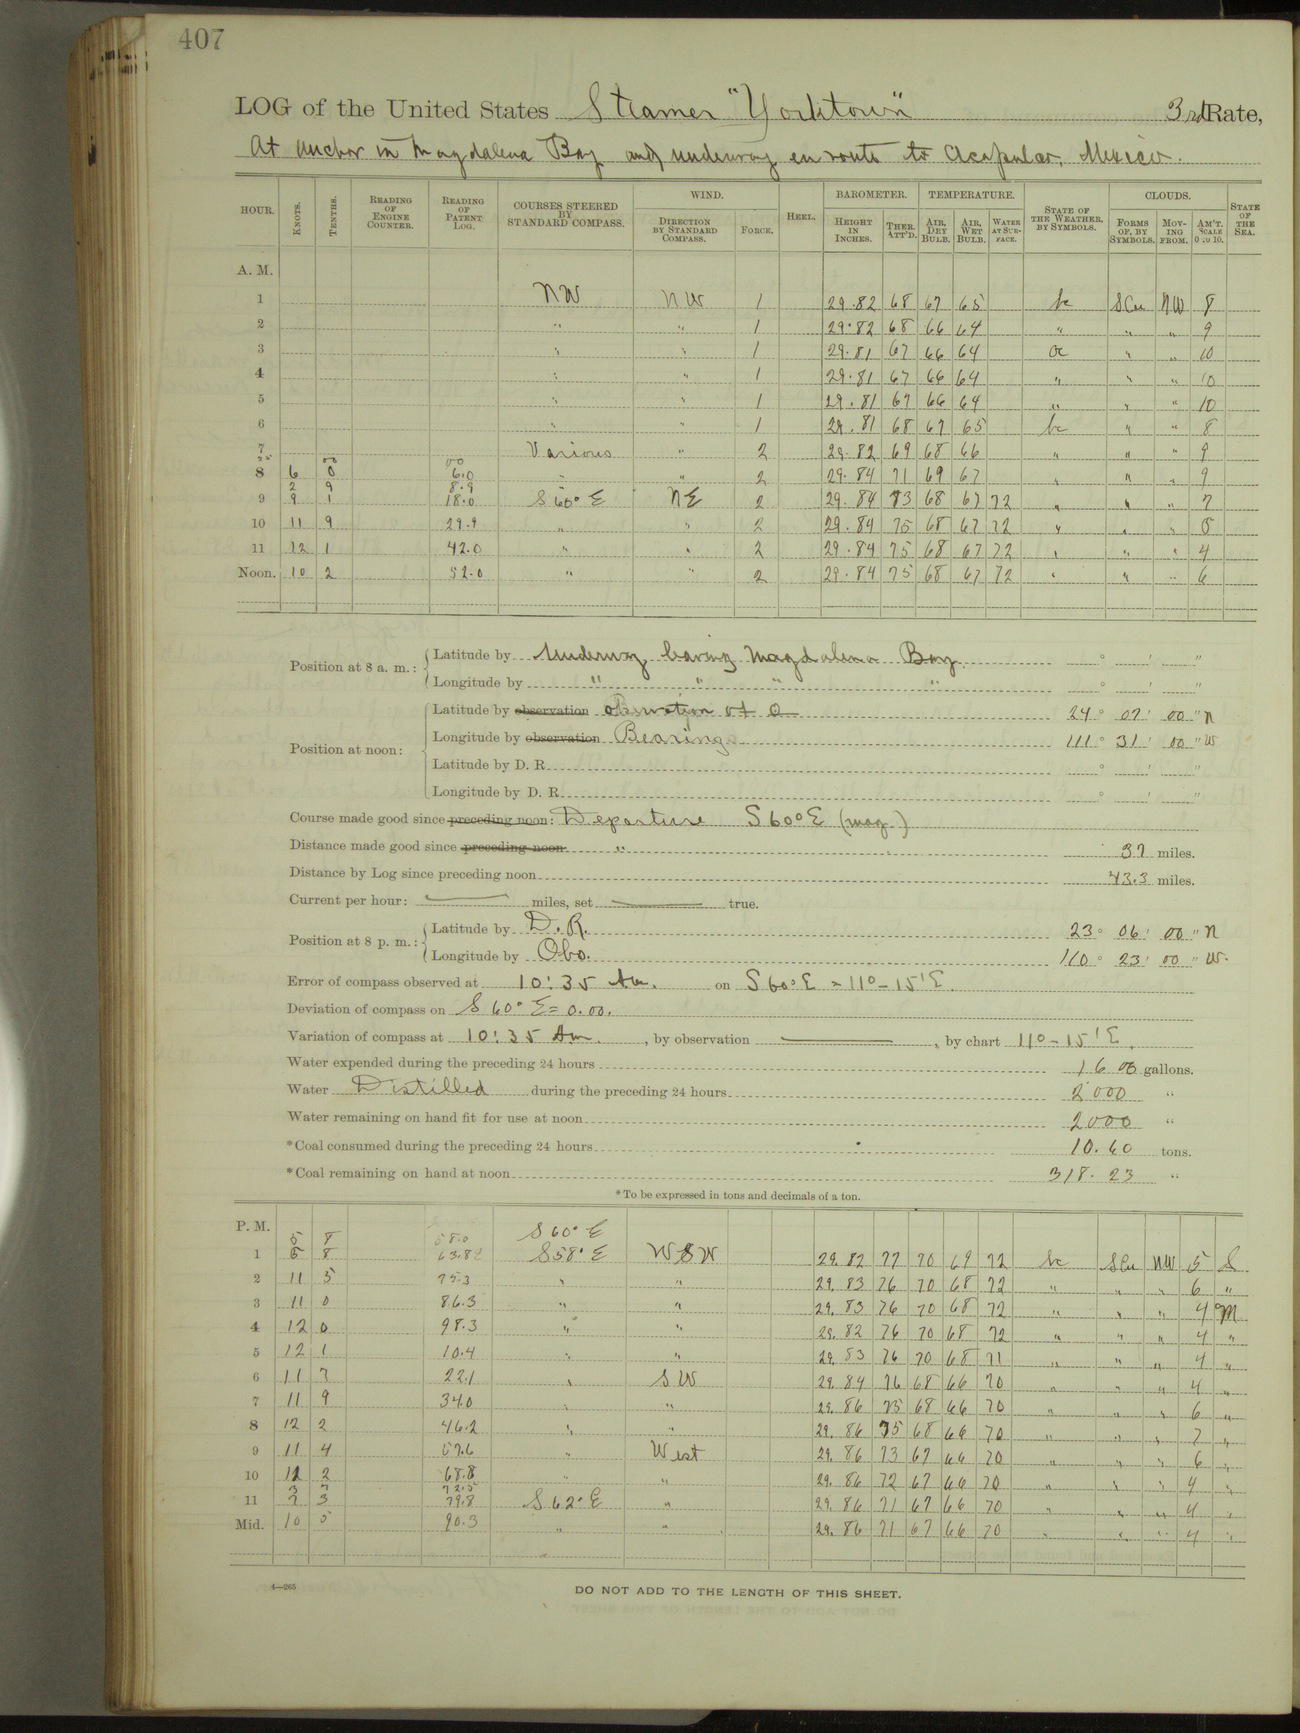 407
LOG of the United States Steamer "Yorktown" 3rd Rate,
At anchor in Magdalena Bay and underway en route to Acapulco, Mexico.
HOUR. KNOTS. TENTHS. READING OF ENGINE COUNTER. READING OF PATENT LOG. COURSES STEERED BY STANDARD COMPASS. WIND. DIRECTION BY STANDARD COMPASS. FORCE. HEEL. BAROMETER. HEIGHT IN INCHES. THER. ATT'D. TEMPERATURE. AIR, DRY BULB. AIR, WET BULB. WATER AT SURFACE. STATE OF THE WEATHER, BY SYMBOLS. CLOUDS. FORMS OF, BY SYMBOLS. MOVING FROM. AM'T. SCALE 0 TO 10. STATE OF THE SEA.
A. M.
1 NW NW 1 29.82 68 67 65 bc SCu NW 8
2 " " 1 29.82 68 66 64 " " " 9
3 " " 1 29.81 67 66 64 oc " " 10
4 " " 1 29.81 67 66 64 " " " 10
5 " " 1 29.81 67 66 64 " " " 10
6 " " 1 29.81 68 67 65 bc " " 8
7 Various " 2 29.82 69 68 66 " " " 9
00 00
8 6 0 6.0 " " 2 29.84 71 69 67 " " " 9
2 9 8.9 "
9 9 1 18.0 S 60° E NE 2 29.84 73 68 67 72 " " " 7
10 11 9 29.9 " " 2 29.84 75 68 67 72 " " " 5
11 12 1 42.0 " " 2 29.84 75 68 67 72 " " " 4
Noon. 10 2 52.0 " " 2 29.84 75 68 67 72 " " " 6
Position at 8 a. m.: Latitude by Underway leaving Magdalena Bay ° ' "
Longitude by " " " " ° ' "
Latitude by observation observation of 24° 07' 00" N
Position at noon: Longitude by observation Bearings 111° 31' 00" W
Latitude by D. R. ° ' "
Longitude by D. R. ° ' "
Course made good since preceding noon: Departure S 60° E (mag.)
Distance made good since preceding noon " 37 miles.
Distance by Log since preceding noon 43.3 miles.
Current per hour: miles, set true.
Position at 8 p. m.: Latitude by D. R. 23° 06' 00" N
Longitude by Obs. 110° 23' 00" W.
Error of compass observed at 10:35 Am. on S 60° E = 11° - 15' E.
Deviation of compass on S 60° E = 0.00.
Variation of compass at 10:35 Am. , by observation , by chart 11° - 15' E.
Water expended during the preceding 24 hours 1600 gallons.
Water Distilled during the preceding 24 hours 2000 "
Water remaining on hand fit for use at noon 2000 "
*Coal consumed during the preceding 24 hours 10.60 tons.
*Coal remaining on hand at noon 318.23 "
*To be expressed in tons and decimals of a ton.
P. M. 5 8 58.0 S 60° E
1 5 8 63.8 S 58° E WSW 29.82 77 70 69 72 bc SCu NW 5 S
2 11 5 75.3 " " 29.83 76 70 68 72 " " " 6 "
3 11 0 86.3 " " 29.83 76 70 68 72 " " " 4 M
4 12 0 98.3 " " 29.82 76 70 68 72 " " " 4 "
5 12 1 10.4 " " 29.83 76 70 68 71 " " " 4 "
6 11 7 22.1 " SW 29.84 76 68 66 70 " " " 4 "
7 11 9 34.0 " " 29.86 75 68 66 70 " " " 6 "
8 12 2 46.2 " " 29.86 75 68 66 70 " " " 7 "
9 11 4 57.6 " West 29.86 73 67 66 70 " " " 6 "
10 11 2 68.8 " " 29.86 72 67 66 70 " " " 4 "
3 7 72.5
11 7 3 79.8 S 62° E " 29.86 71 67 66 70 " " " 4 "
Mid. 10 5 90.3 " " 29.86 71 67 66 70 " " " 4 "
4—265
DO NOT ADD TO THE LENGTH OF THIS SHEET.